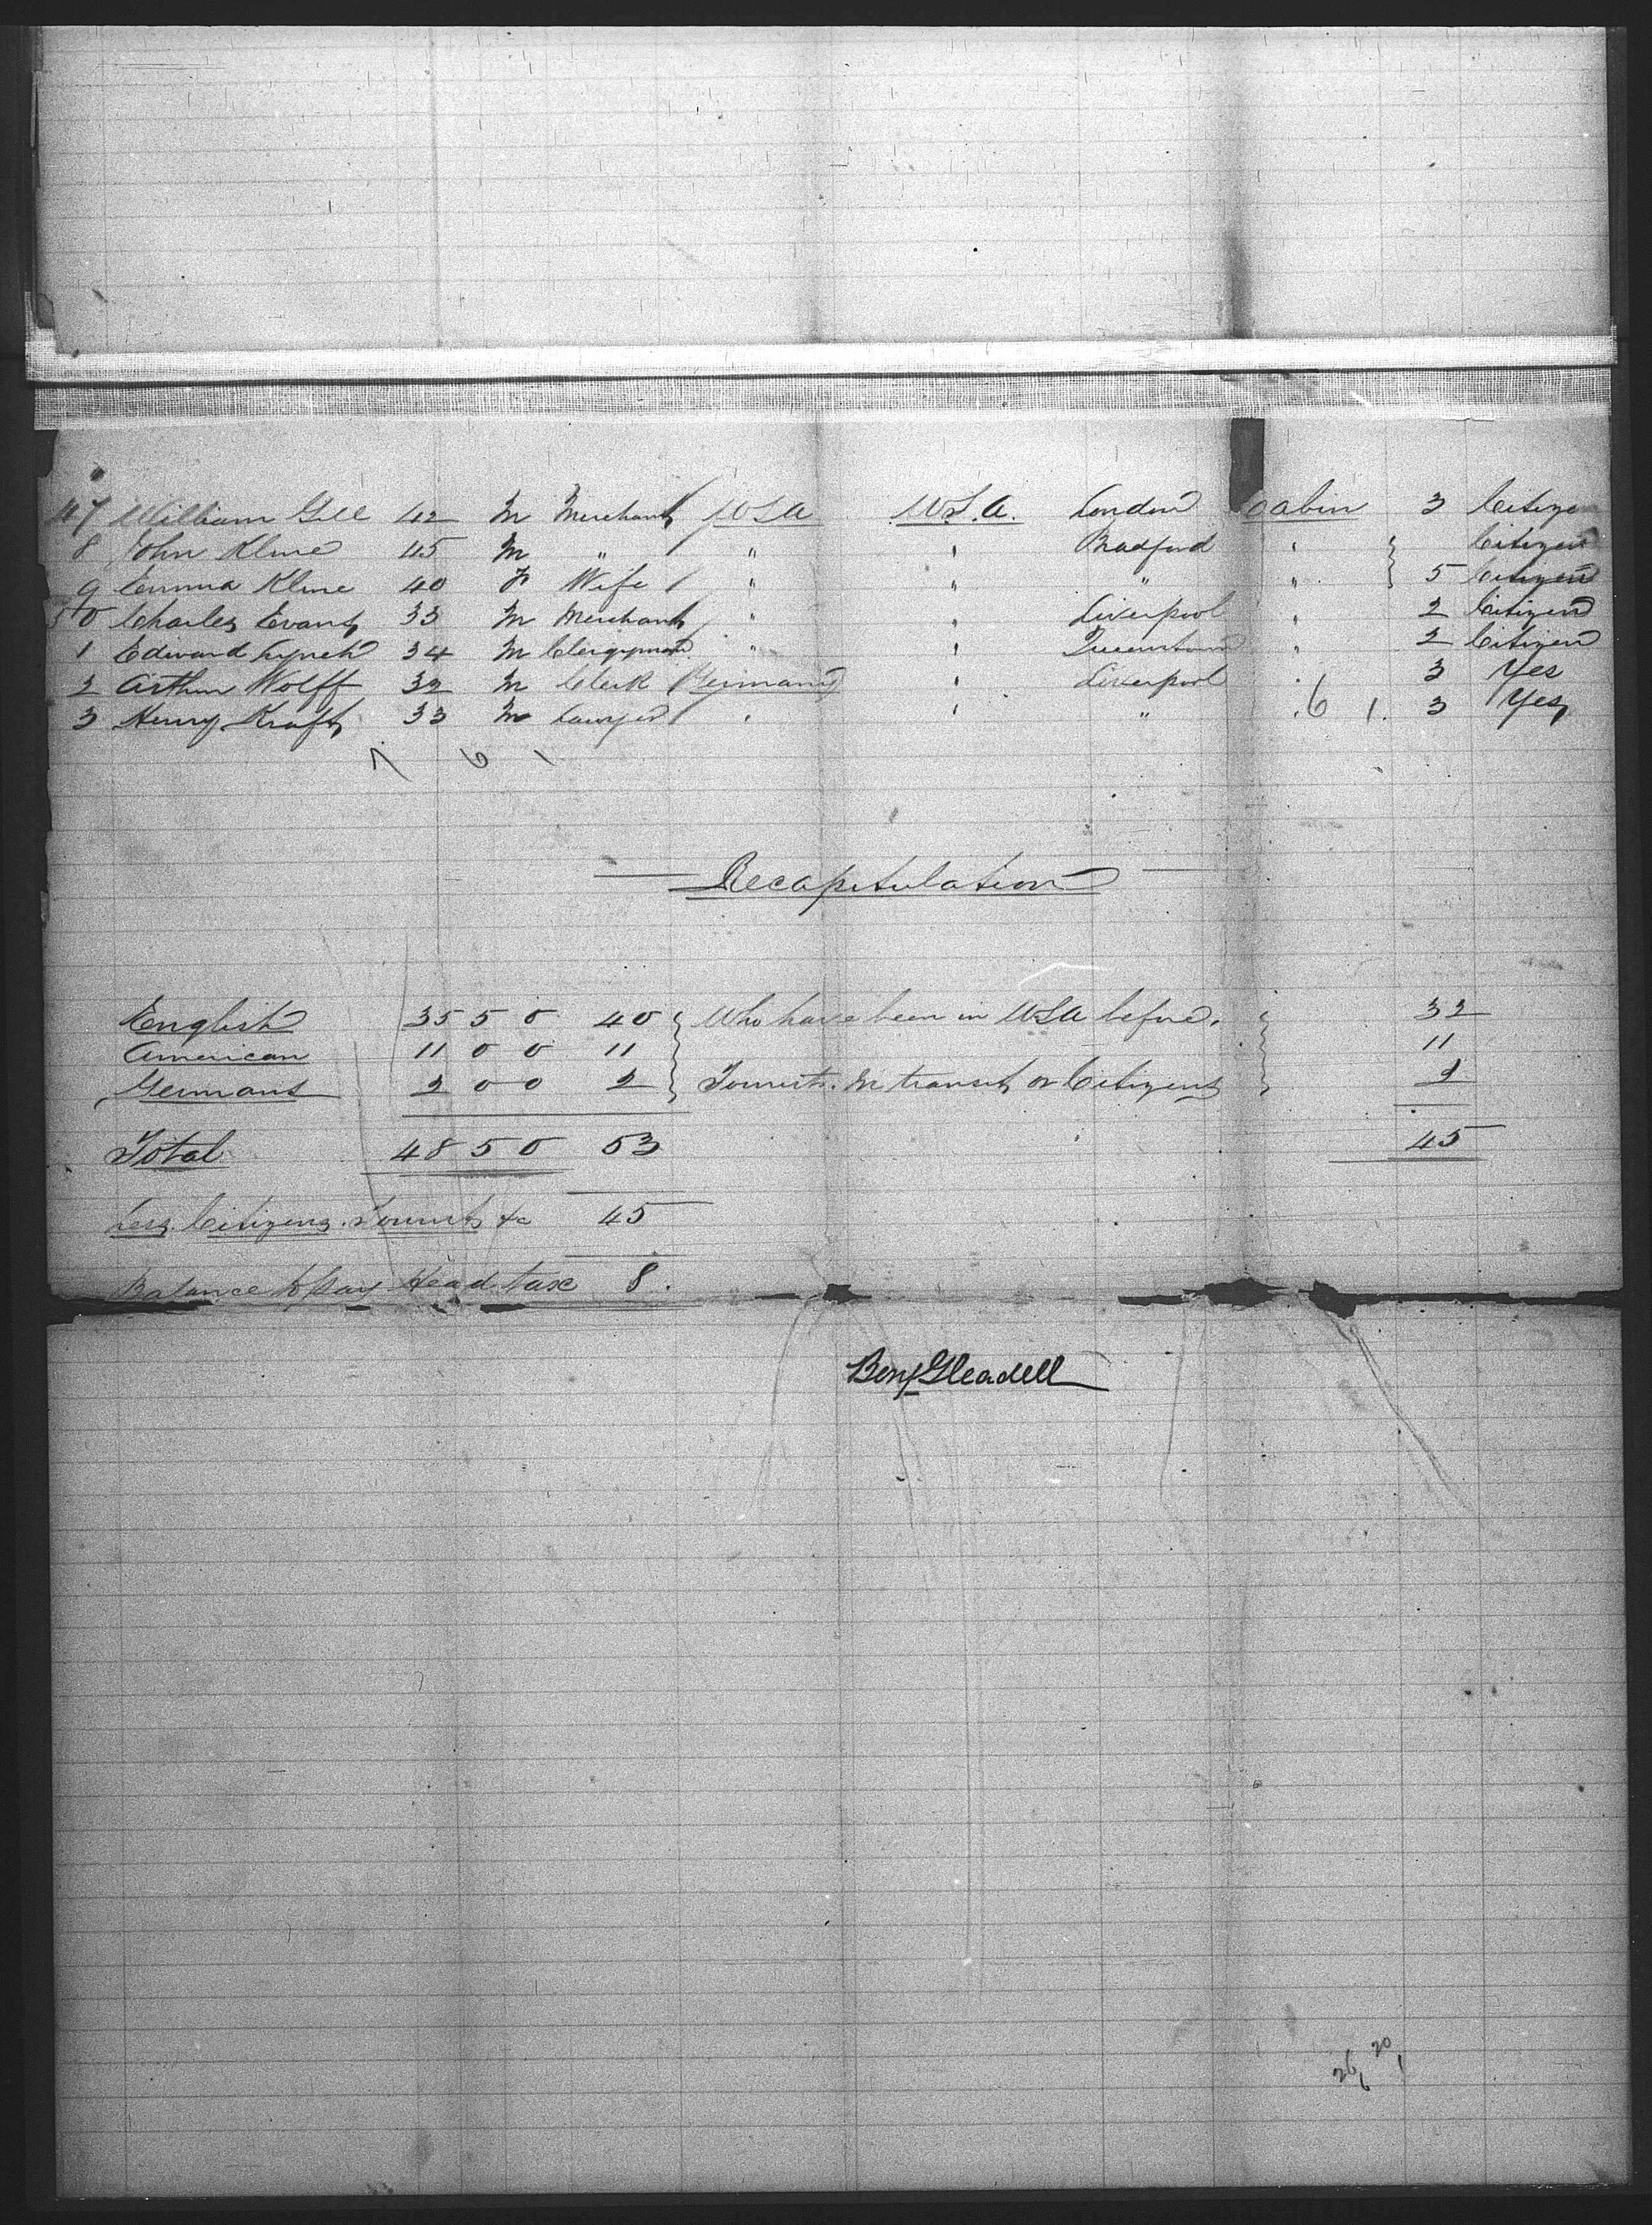 47 William Gill 42 M Merchant USA U.S.A. London Cabin 3 Citizen
8 John Kline 45 M " " " Bradford " Citizen
9 Emma Kline 40 F Wife " " " " 5 Citizen
50 Charles Evans 33 M Merchant " " Liverpool " 2 Citizen
1 Edward Lynch 34 M Clergyman " " Queenstown " 2 Citizen
2 Arthur Wolff 32 M Clerk Germany " Liverpool " 3 Yes
3 Henry Kraft 33 M Lawyer " " " " 6 1 3 Yes
7 6 1
Recapitulation
English 35 5 0 40 Who have been in USA before. 32
American 11 0 0 11 11
Germans 2 0 0 2 Tourists. In transit or Citizens 2
Total 48 5 0 53 45
Less Citizens. Tourists &c 45
Balance to pay Head tax 8.
Benj Gleadell
26 20
6 1